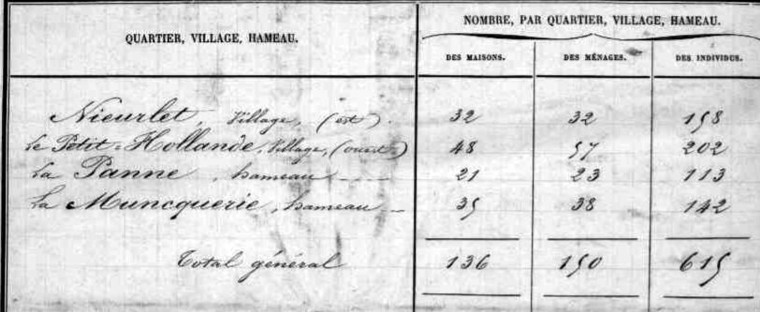 QUARTIER, VILLAGE, HAMEAU.
NOMBRE, PAR QUARTIER, VILLAGE, HAMEAU.
DES MAISONS. DES MÉNAGES. DES INDIVIDUS.
Nieurlet, Village, (est). 32 32 158
Le Petit-Hollande, Village, (ouest) 48 57 202
La Panne, hameau 21 23 113
La Muncquerie, hameau 35 38 142
Total général 136 150 615